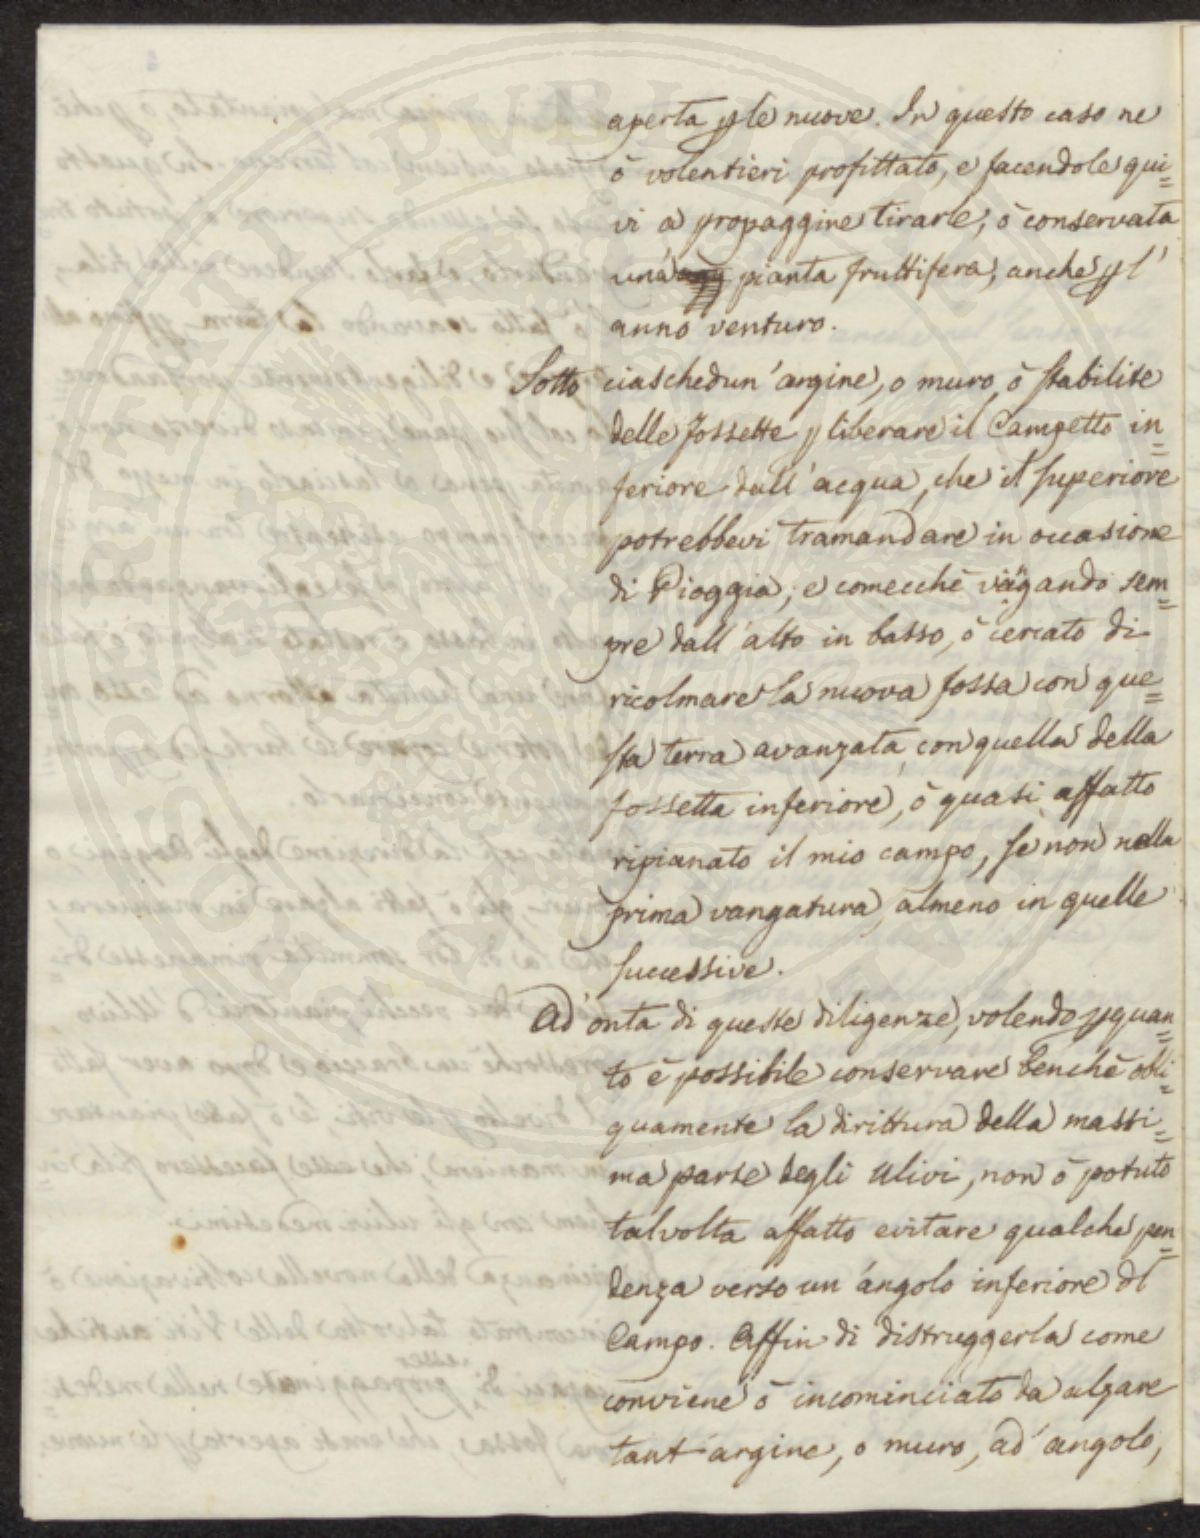 aperta p le nuove. In questo caso ne
ò volentieri profittato, e facendole qui=
vi a propaggine tirare, ò conservata
una pianta fruttifera, anche p l'
anno venturo.
Sotto ciaschedun' argine, o muro ò stabilite
delle fossette p liberare il Campetto in=
feriore dall' acqua, che il superiore
potrebbevi tramandare in occasione
di Pioggia; e comecchè vangando sem=
pre dall' alto in basso, ò cercato di
ricolmare la nuova fossa con que=
sta terra avanzata con quella della
fossetta inferiore, ò quasi affatto
ripianato il mio campo, se non nella
prima vangatura, almeno in quelle
successive.
Ad onta di queste diligenze, volendo p quan=
to è possibile conservare benchè obli=
quamente la dirittura della massi=
ma parte degli Ulivi, non ò potuto
talvolta affatto evitare qualche pen=
denza verso un' angolo inferiore dl
Campo. Affin di distruggerla come
conviene ò incominciato da alzare
tant' argine, o muro, ad' angolo,